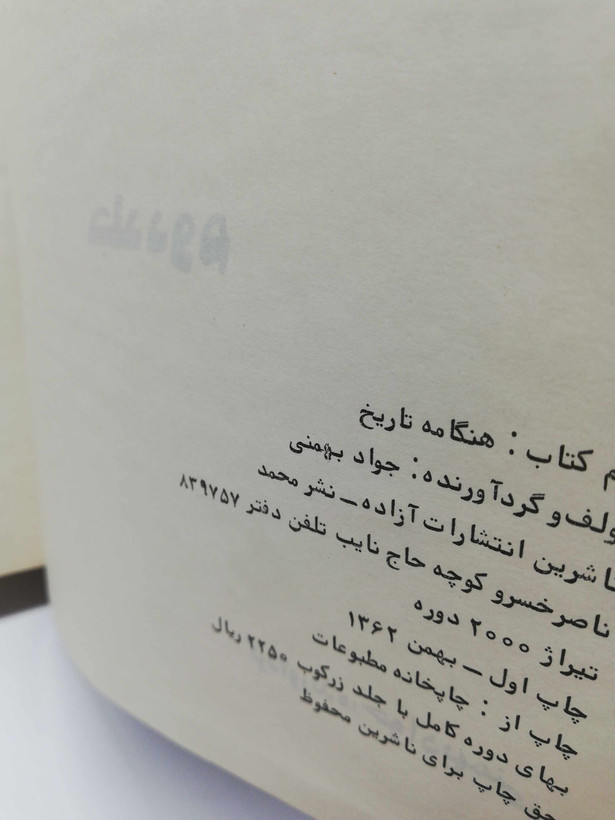 کتاب : هنگامه تاریخ
و گردآورنده : جواد بهمنی
ناشرین انتشارات آزاده ــ نشر محمد
ناصرخسرو کوچه حاج نایب تلفن دفتر ۸۳۹۷۵۷
تیراژ ۲۰۰۰ دوره
چاپ اول ــ بهمن ۱۳۶۲
چاپ از : چاپخانه مطبوعات
بهای دوره کامل با جلد زرکوب ۲۲۵۰ ریال
حق چاپ برای ناشرین محفوظ